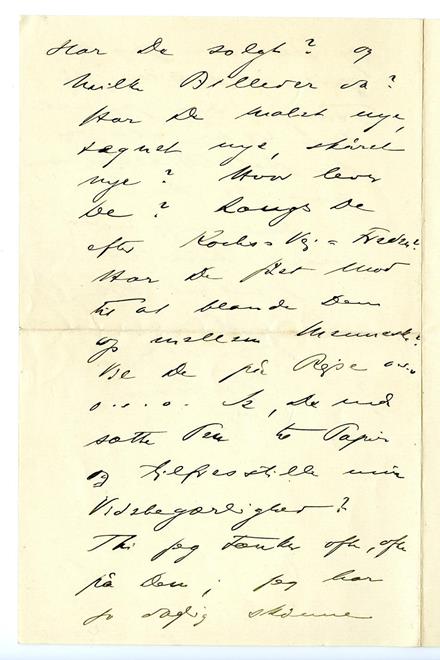 Har De solgt? og
hvilke Billeder da?
Har De malet nye,
tegnet nye, skåret
nye? Hvor lever
De? Længs De
efter Kochs-Vej-
Har De fået Mod
til at blande Dem
op mellem Mennesker?
Vil De på Rejse o.s.v.
o.s.v. De ved
sætte Pen til Papir
og tilfredsstille min
Videbegærlighed?
Thi jeg tænker ofte, ofte
på Dem; jeg har
jo daglig skønne